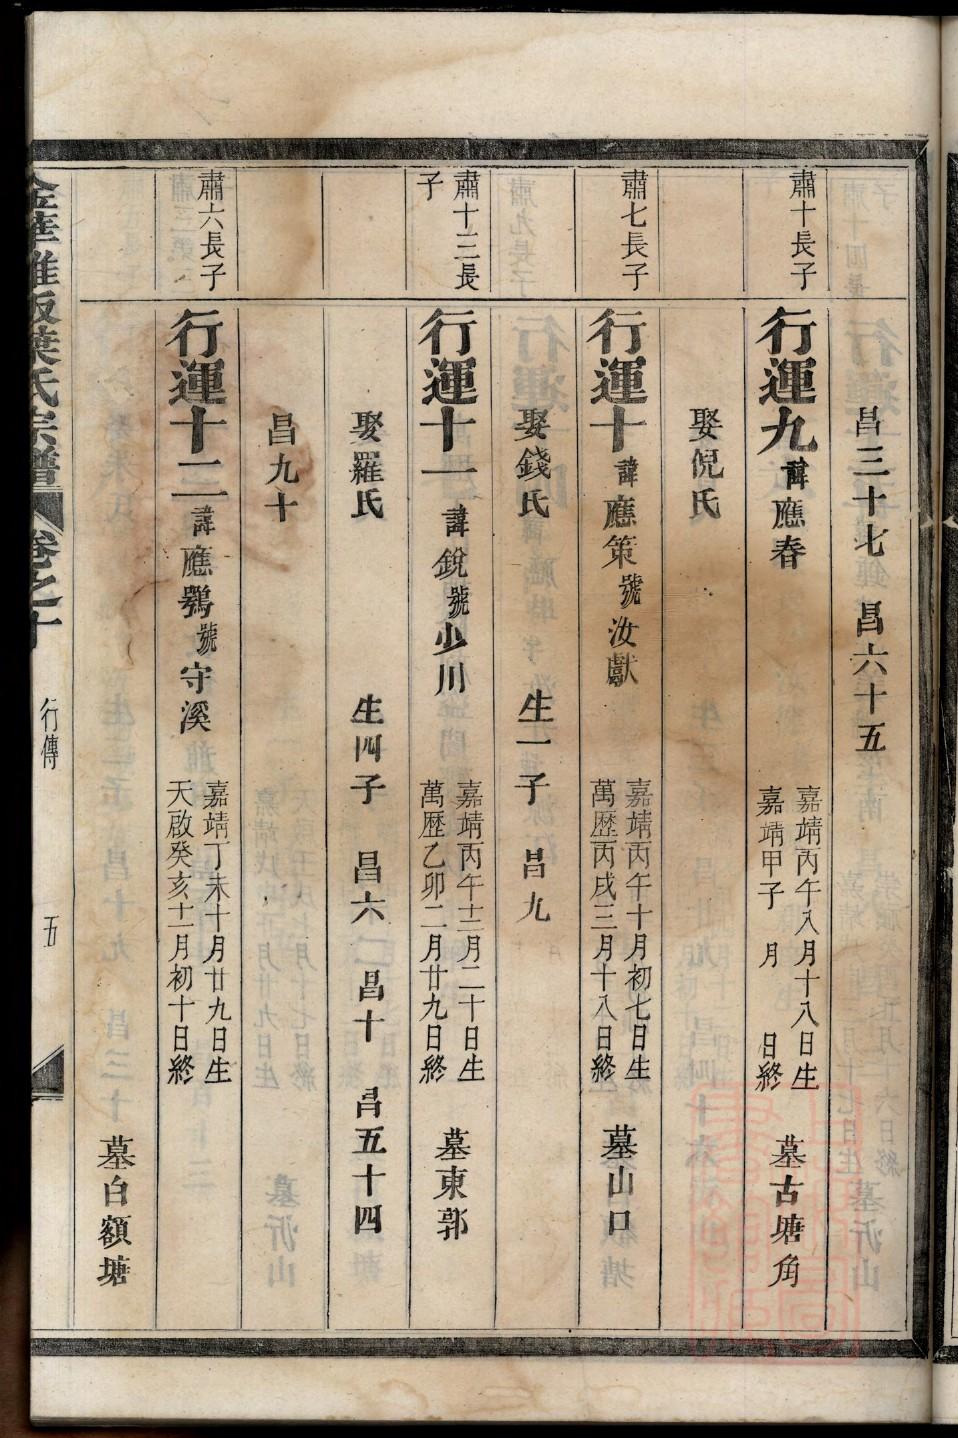 昌三十七 昌六十五
肅十長子
行運九 諱應春 嘉靖丙午八月十八日生 嘉靖甲子 月 日終 墓古塘角
娶倪氏
肅七長子
行運十 諱應策號汝獻 嘉靖丙午十月初七日生 萬歴丙戌三月十八日終 墓山口
娶錢氏 生一子 昌九
肅十三長子
行運十一 諱銳號少川 嘉靖丙午十二月二十日生 萬歴乙卯二月廿九日終 墓東郭
娶羅氏 生四子 昌六二 昌十 昌五十四
昌九十
肅六長子
行運十二 諱應鶚號守溪 嘉靖丁未十月廿九日生 天啟癸亥十一月初十日終
墓白額塘
葉氏宗譜 卷之十 行傳 五